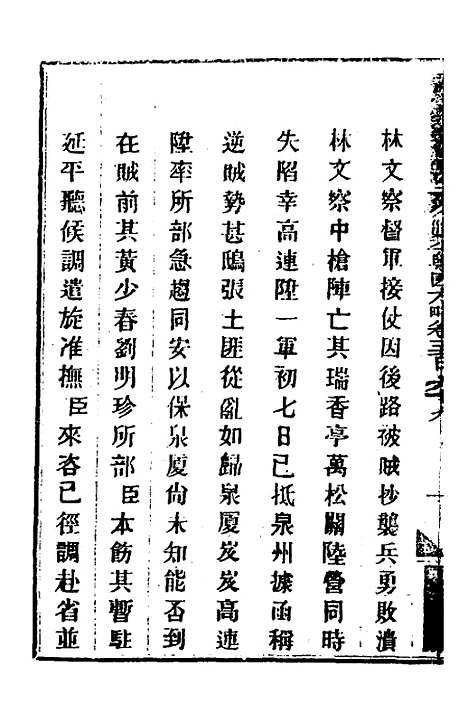 林文察督軍接仗因後路被賊抄襲兵勇敗潰
林文察中槍陣亡其瑞香亭萬松關陸營同時
失陷幸高連陞一軍初七日已抵泉州據函稱
逆賊勢甚鴟張土匪從亂如歸泉厦岌岌高連
陞率所部急趨同安以保泉厦尚未知能否到
在賊前其黃少春劉明珍所部臣本飭其暫駐
延平聽候調遣旋准撫臣來咨已徑調赴省並